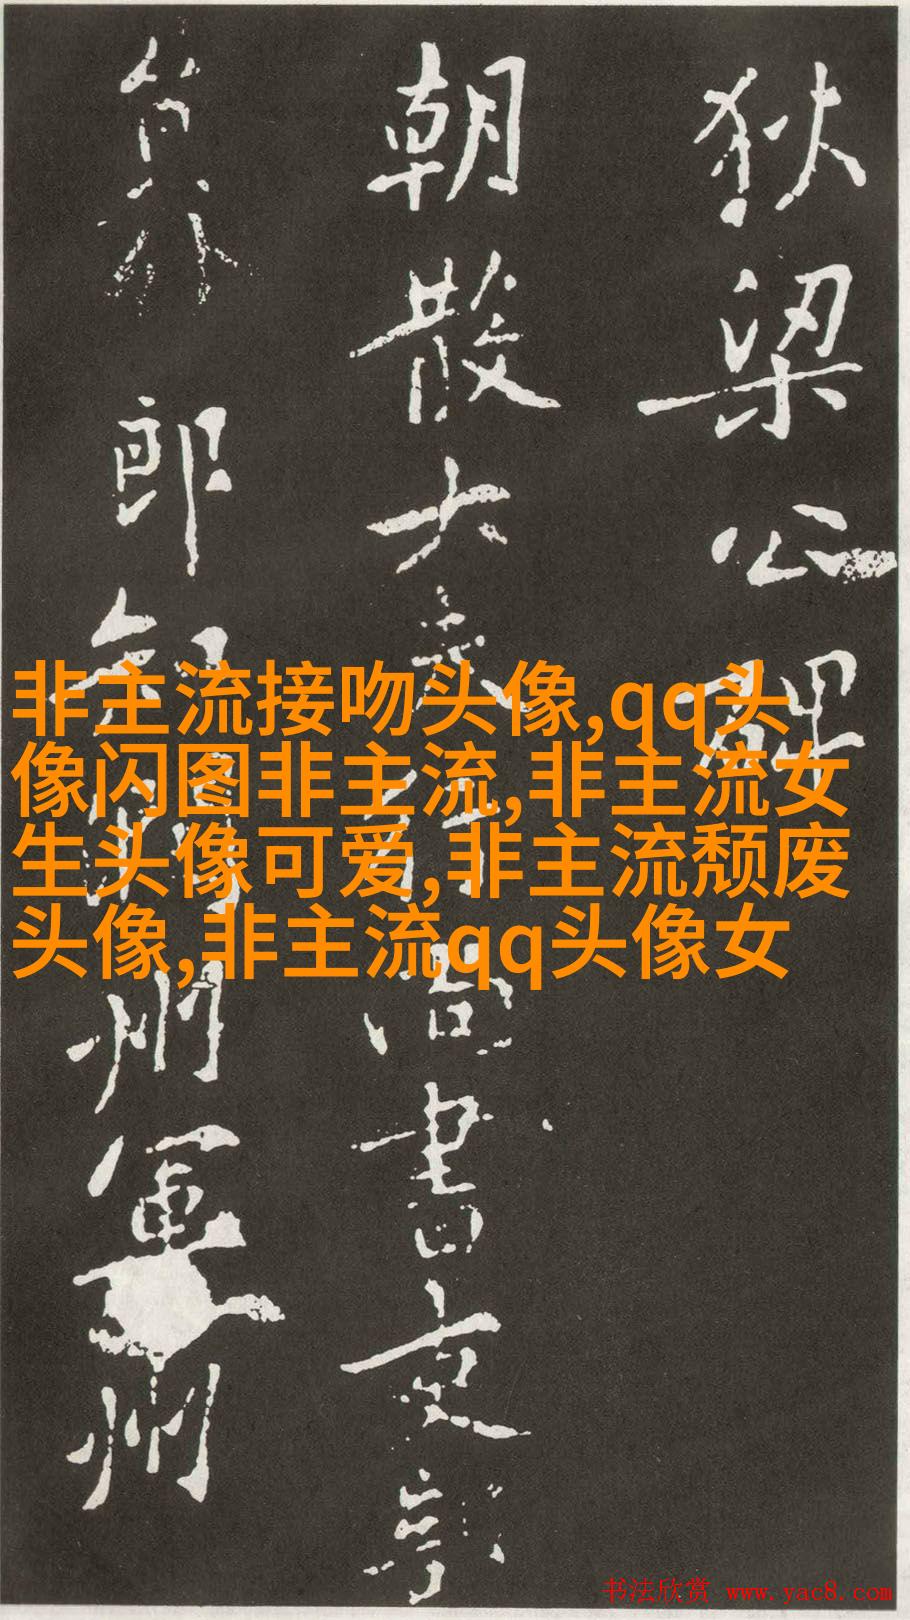 狄梁公碑
朝散大夫行尚書吏部
員外郎知潤州軍州
非主流接吻头像,qq头
像闪图非主流,非主流女
生头像可爱,非主流颓废
头像,非主流qq头像女
书法欣赏 www.yac8.com